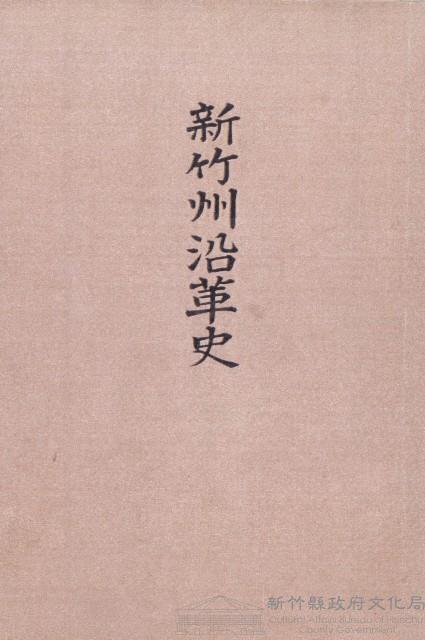 新竹州沿革史
新竹縣政府文化局
Cultural Affairs Bureau of Hsinchu
County Government